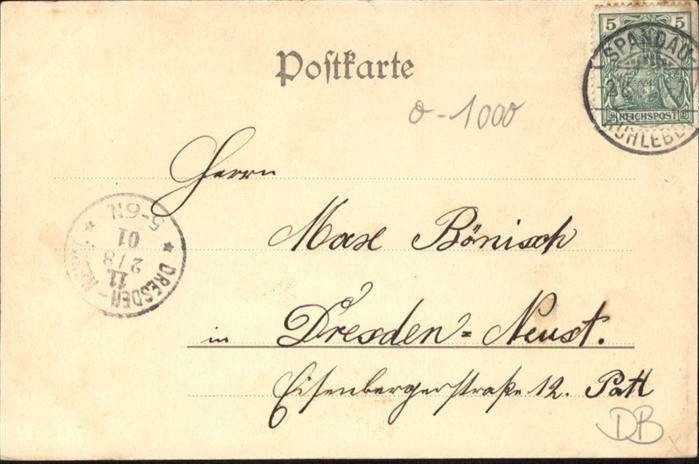 5 5
REICHSPOST
SPANDAU
RUHLEBEN
Postkarte
0-1000
Herrn
Max Bönisch
in Dresden=Neust.
Eisenbergerstraße 12. Patt
DRESDEN-
11
2/8
01
5-6N.
DB